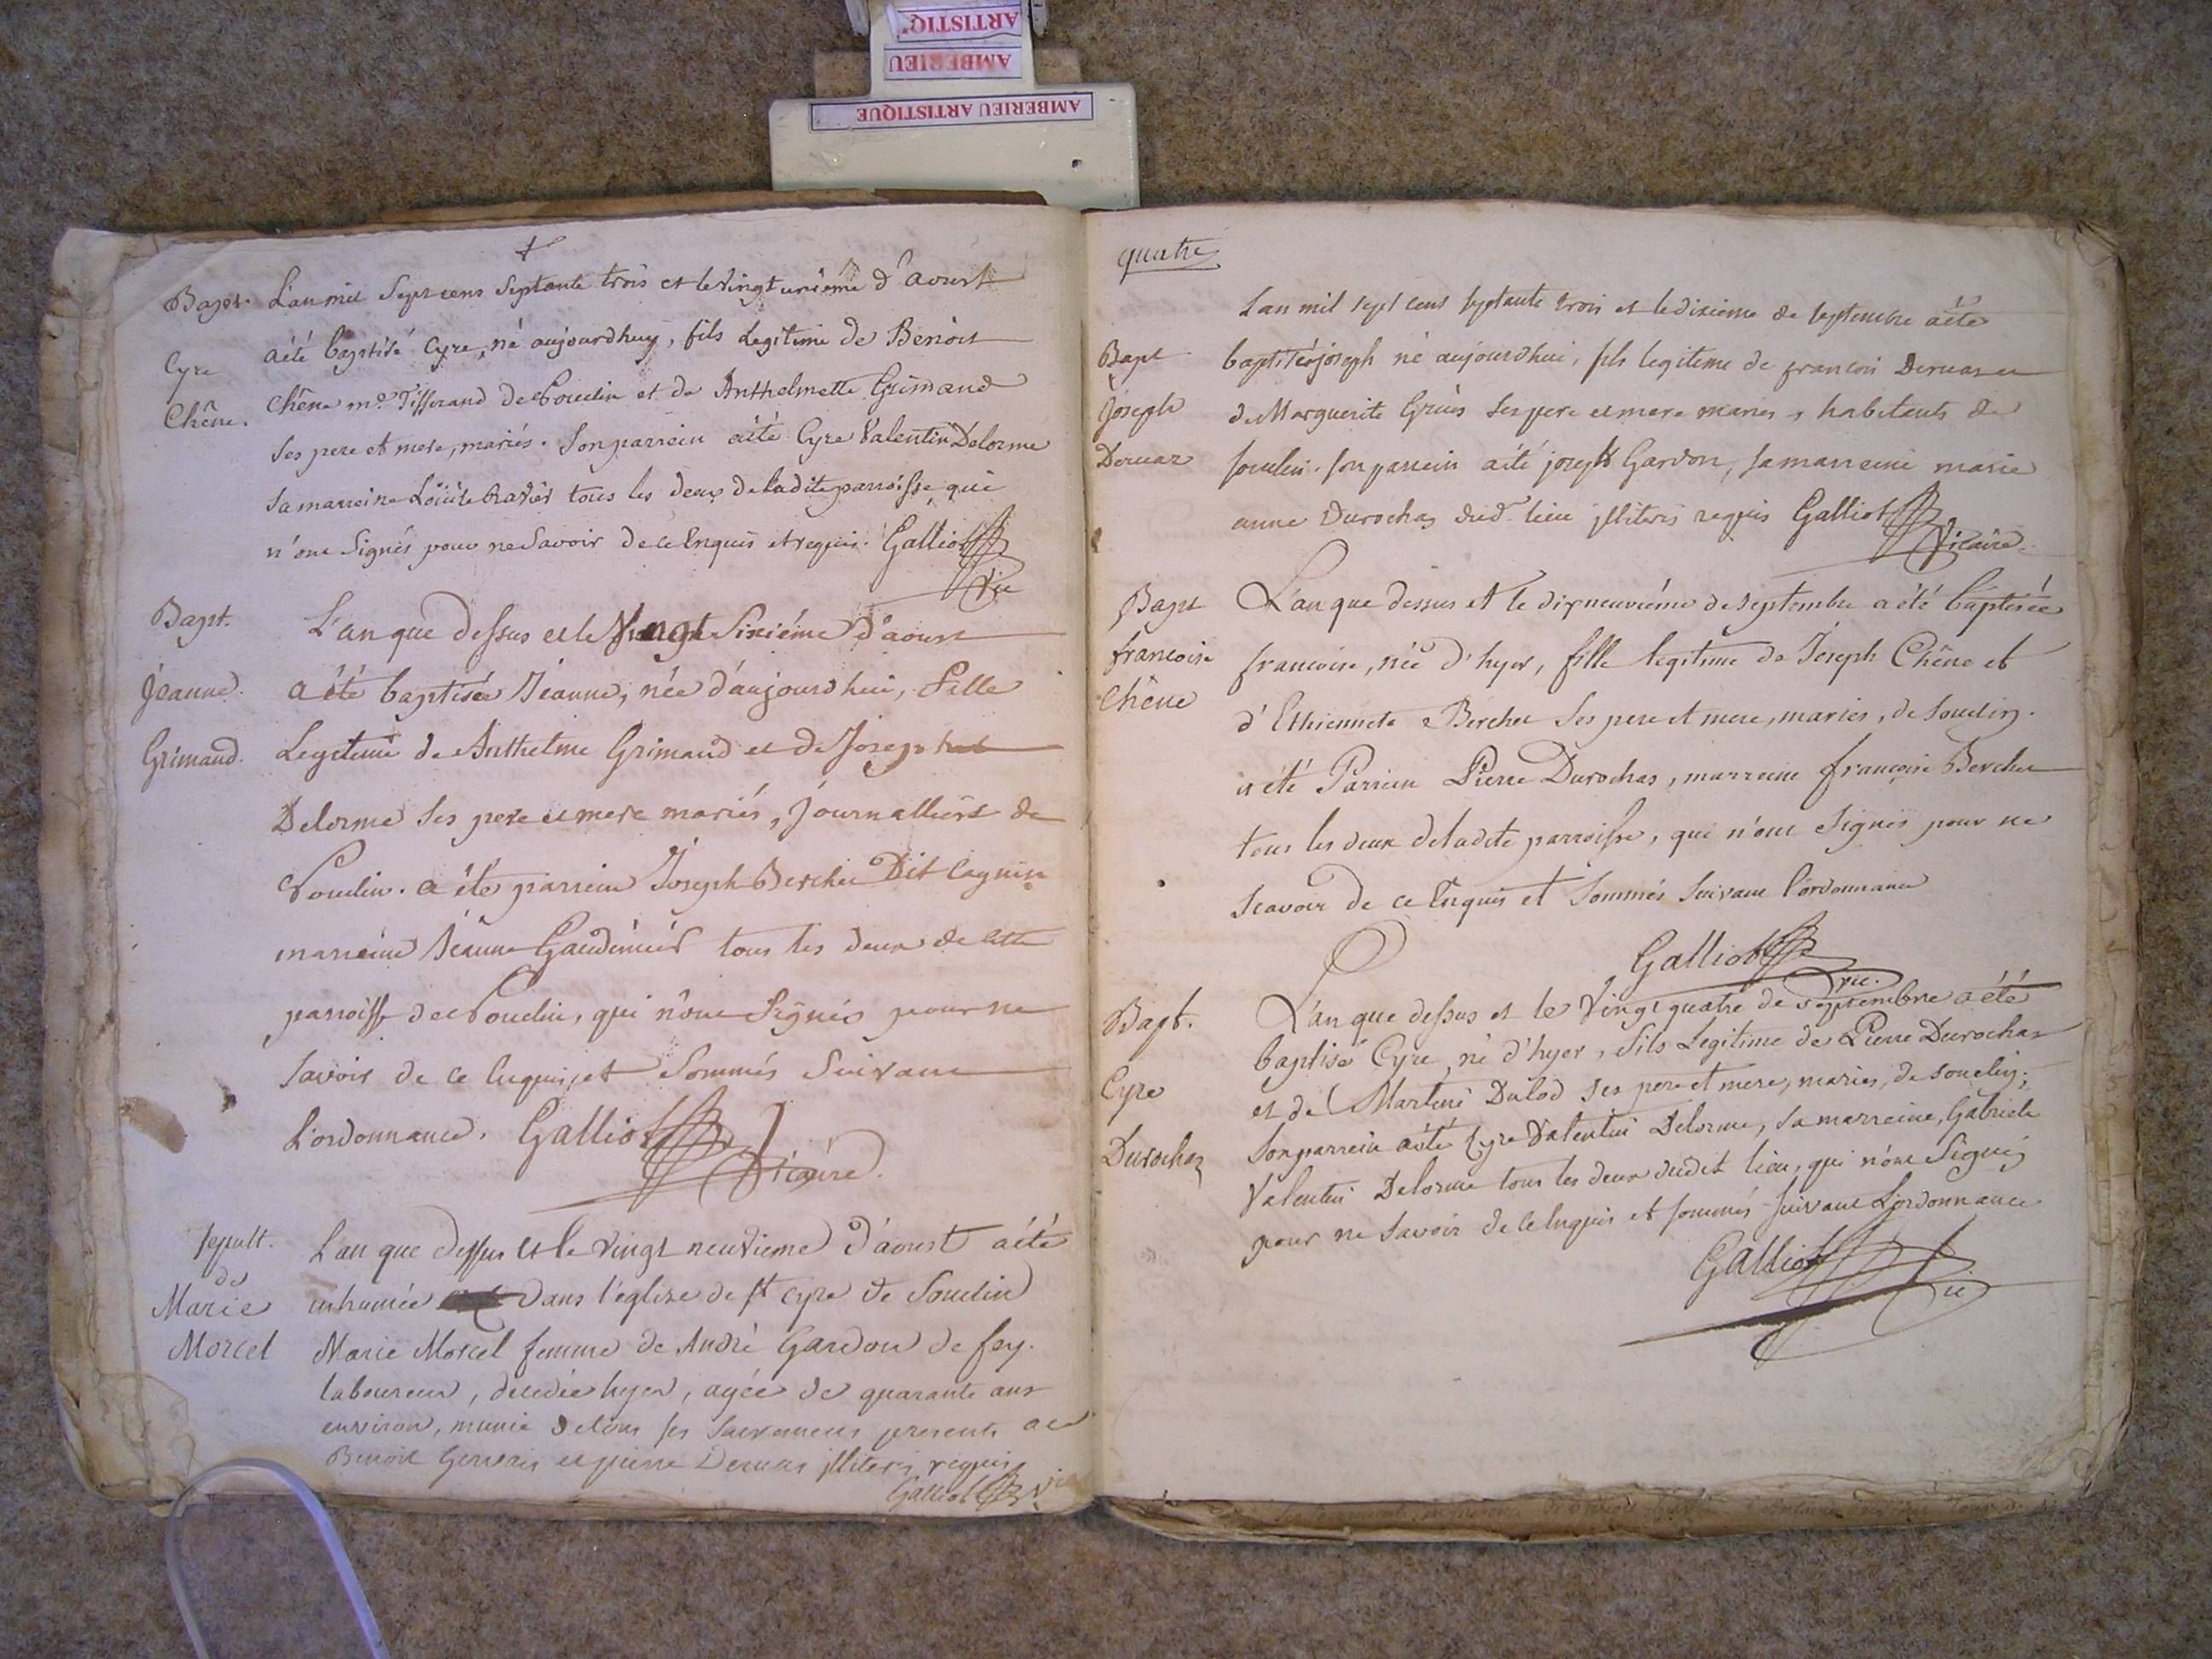 ARTISTIQ
AMBERIEU
AMBERIEU ARTISTIQUE
Bapt. L'an mil Sept cens Septante trois et le Vingt unième d'aoust
Cyre
Chêne.
a été baptisé Cyre, né aujourdhuy, fils Legitime de Benoit
Chêne md. Tisserand de Souclin et de Anthelmette Grimand
Ses pere et mere, mariés. Son parrein a été Cyre Valentin Delorme
Sa marreine tous les deux de ladite parroisse, qui
n'ont Signés pour ne Savoir de ce Enquis et requis. Galliot
Vic
Bapt.
Jeanne.
Grimand.
L'an que dessus et le Vingt Sixiéme d'aoust
a été baptisée Jéanne, née d'aujourdhui, fille
Legitime de Anthelme Grimand et de Joseph
Delorme Ses pere et mere mariés, Journalliers de
Souclin. a été parrein Joseph Berchet Dit
marreine Jéanne tous les deux de cette
parroisse de Souclin, qui n'ont Signés pour ne
Savoir de ce Enquis, et Sommés Suivant
L'ordonnance. Galliot
Vicaire.
sepult.
de
Marie
Morcel
L'an que dessus et le Vingt neuvieme d'aoust a été
inhumée dans l'église de st cyre de Souclin
Marie Morcel femme de André Gardon de fay.
laboureur, decedée hyer, agée de quarante ans
environ, munie de tous ses Sacremens presents
Benoit Gervais et pierre Deruas jlliteris requis
Galliot Vic
quatre
Bapt
Joseph
Deruaz
L'an mil sept cens septante trois et le dixieme de septembre a été
baptisé joseph né aujourdhui, fils legitime de francois Deruas et
de Marguerite Ses pere et mere mariés, habitants de
souclin. son parrein a été joseph Gardon, sa marreine marie
anne Durochas dud. lieu jlliteris requis Galliot
Vicaire.
Bapt
francoise
Chêne
L'an que dessus et le dixneuviéme de septembre a été baptisée
francoise, née d'hyer, fille legitime de Joseph Chêne et
d'Ethiennete Berchet Ses pere et mere, mariés, de Souclin.
a été Parrein Pierre Durochas, marreine françoise Berchet
tous les deux de ladite parroisse, qui n'ont Signés pour ne
Scavoir de ce Enquis et Sommés Suivant l'ordonnance
Galliot
vic.
Bapt.
Cyre
Durochaz
L'an que dessus et le Vingt quatre de septembre a été
baptisé Cyre, né d'hyer, fils Legitime de Pierre Durochas
et de Martine Dulod Ses pere et mere, mariés, de souclin;
Son parrein a été Cyre Valentin Delorme, Sa marreine, Gabriele
Valentin Delorme tous les deux dudit lieu, qui n'ont Signés
pour ne Savoir de ce Enquis et sommés Suivant L'ordonnance
Galliot
Vic